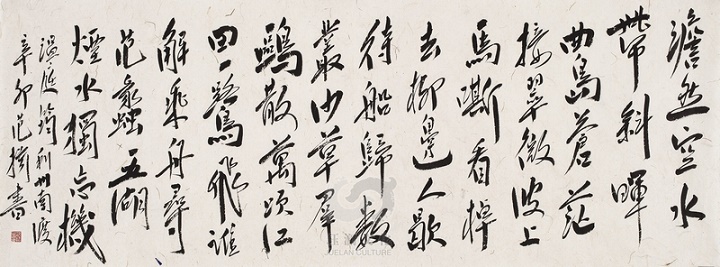 澹然空水
帶斜暉
曲島蒼茫
接翠微波上
馬嘶看棹
去柳邊人歇
待船歸數
叢沙草羣
鷗散萬頃江
田一鷺飛誰
解乘舟尋
范蠡五湖
煙水獨忘機
温庭筠利州南渡
辛卯范書
CULTURE